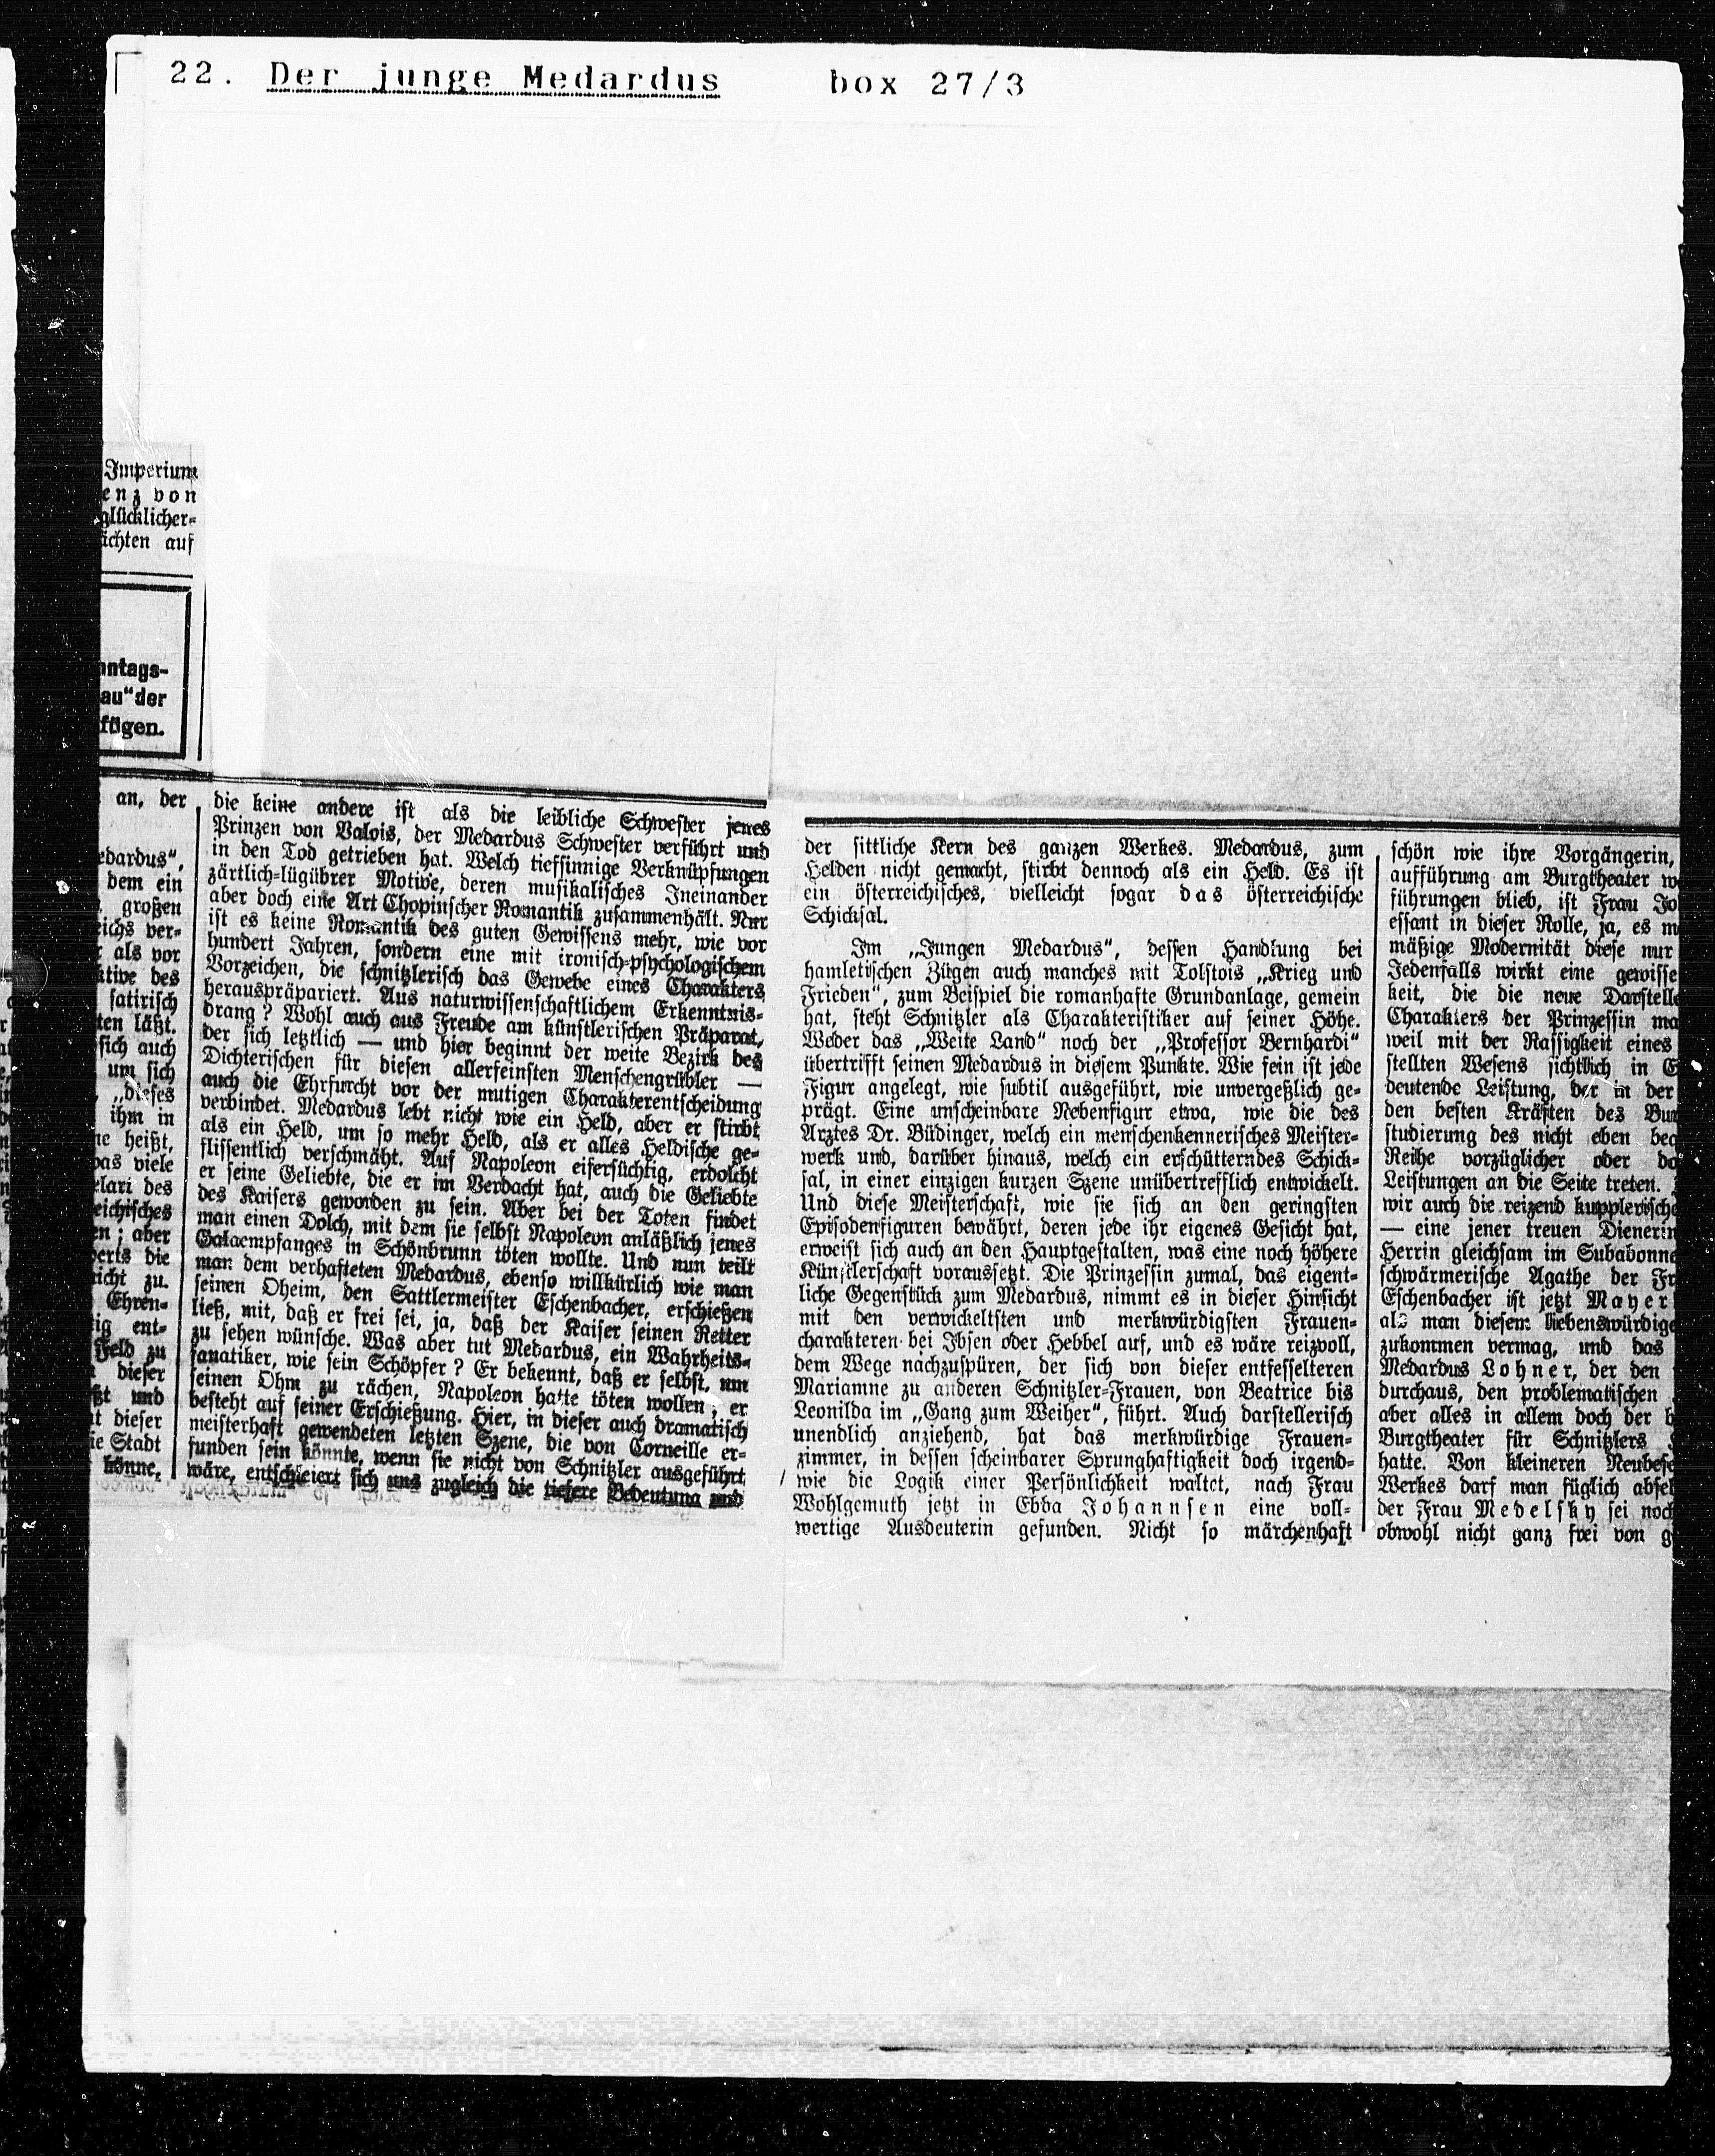 22. Der junge Medardus box 27/3
Imperium
enz von
glücklicher=
ächten auf
nntags-
au“ der
fügen.
an, der
edardus“,
dem ein
großen
eichs ver=
als vor
ktive des
satirisch
ten läßt.
sich auch
um sich
„dieses
ihm in
ne heißt,
was viele
elari des
eichisches
en; aber
derts die
nicht zu.
Ehren=
tig ent=
Feld zu
dieser
ßt und
t dieser
ie Stadt
könne,
die keine andere ist als die leibliche Schwester jenes
Prinzen von Valois, der Medardus Schwester verführt und
in den Tod getrieben hat. Welch tiefsinnige Verknüpfungen
zärtlich=lügübrer Motive, deren musikalisches Ineinander
aber doch eine Art Chopinscher Romantik zusammenhält. Nur
ist es keine Romantik des guten Gewissens mehr, wie vor
hundert Jahren, sondern eine mit ironisch=psychologischem
Vorzeichen, die schnitzlerisch das Gewebe eines Charakters
herauspräpariert. Aus naturwissenschaftlichem Erkenntnis=
drang? Wohl auch aus Freude am künstlerischen Präparat,
der sich letztlich — und hier beginnt der weite Bezirk des
Dichterischen für diesen allerfeinsten Menschengrübler —
auch die Ehrfurcht vor der mutigen Charakterentscheidung
verbindet. Medardus lebt nicht wie ein Held, aber er stirbt
als ein Held, um so mehr Held, als er alles Heldische ge=
flissentlich verschmäht. Auf Napoleon eifersüchtig, erdolcht
er seine Geliebte, die er im Verdacht hat, auch die Geliebte
des Kaisers geworden zu sein. Aber bei der Toten findet
man einen Dolch, mit dem sie selbst Napoleon anläßlich jenes
Galaempfanges in Schönbrunn töten wollte. Und nun teilt
man dem verhafteten Medardus, ebenso willkürlich wie man
seinen Oheim, den Sattlermeister Eschenbacher, erschießen
ließ, mit, daß er frei sei, ja, daß der Kaiser seinen Retter
zu sehen wünsche. Was aber tut Medardus, ein Wahrheits=
fanatiker, wie sein Schöpfer? Er bekennt, daß er selbst, um
seinen Ohm zu rächen, Napoleon hatte töten wollen; er
besteht auf seiner Erschießung. Hier, in dieser auch dramatisch
meisterhaft gewendeten letzten Szene, die von Corneille er=
funden sein könnte, wenn sie nicht von Schnitzler ausgeführt
wäre, entschleiert sich uns zugleich die tiefere Bedeutung und
der sittliche Kern des ganzen Werkes. Medardus, zum
Helden nicht gemacht, stirbt dennoch als ein Held. Es ist
ein österreichisches, vielleicht sogar das österreichische
Schicksal.
Im „Jungen Medardus“, dessen Handlung bei
hamletischen Zügen auch manches mit Tolstois „Krieg und
Frieden“, zum Beispiel die romanhafte Grundanlage, gemein
hat, steht Schnitzler als Charakteristiker auf seiner Höhe.
Weder das „Weite Land“ noch der „Professor Bernhardi“
übertrifft seinen Medardus in diesem Punkte. Wie fein ist jede
Figur angelegt, wie subtil ausgeführt, wie unvergeßlich ge=
prägt. Eine unscheinbare Nebenfigur etwa, wie die des
Arztes Dr. Büdinger, welch ein menschenkennerisches Meister=
werk und, darüber hinaus, welch ein erschütterndes Schick=
sal, in einer einzigen kurzen Szene unübertrefflich entwickelt.
Und diese Meisterschaft, wie sie sich an den geringsten
Episodenfiguren bewährt, deren jede ihr eigenes Gesicht hat,
erweist sich auch an den Hauptgestalten, was eine noch höhere
Künstlerschaft voraussetzt. Die Prinzessin zumal, das eigent=
liche Gegenstück zum Medardus, nimmt es in dieser Hinsicht
mit den verwickeltsten und merkwürdigsten Frauen=
charakteren bei Ibsen oder Hebbel auf, und es wäre reizvoll,
dem Wege nachzuspüren, der sich von dieser entfesselteren
Mariamne zu anderen Schnitzler=Frauen, von Beatrice bis
Leonilda im „Gang zum Weiher“, führt. Auch darstellerisch
unendlich anziehend, hat das merkwürdige Frauen=
zimmer, in dessen scheinbarer Sprunghaftigkeit doch irgend=
wie die Logik einer Persönlichkeit waltet, nach Frau
Wohlgemuth jetzt in Ebba Johannsen eine voll=
wertige Ausdeuterin gefunden. Nicht so märchenhaft
schön wie ihre Vorgängerin,
aufführung am Burgtheater w
führungen blieb, ist Frau Jo
essant in dieser Rolle, ja, es m
mäßige Modernität diese nur
Jedenfalls wirkt eine gewisse
keit, die die neue Darstelle
Charakters der Prinzessin ma
weil mit der Rassigkeit eines
stellten Wesens sichtlich in E
deutende Leistung, der in der
den besten Kräften des Bur
studierung des nicht eben beq
Reihe vorzüglicher oder do
Leistungen an die Seite treten.
wir auch die reizend kupplerische
— eine jener treuen Dienerin
Herrin gleichsam im Subabonne
schwärmerische Agathe der Fr
Eschenbacher ist jetzt Mayer
als man diesem liebenswürdige
zukommen vermag, und das
Medardus Lohner, der den
durchaus, den problematischen
aber alles in allem doch der b
Burgtheater für Schnitzlers
hatte. Von kleineren Neubese
Werkes darf man füglich abseh
der Frau Medelsky sei noch
obwohl nicht ganz frei von g